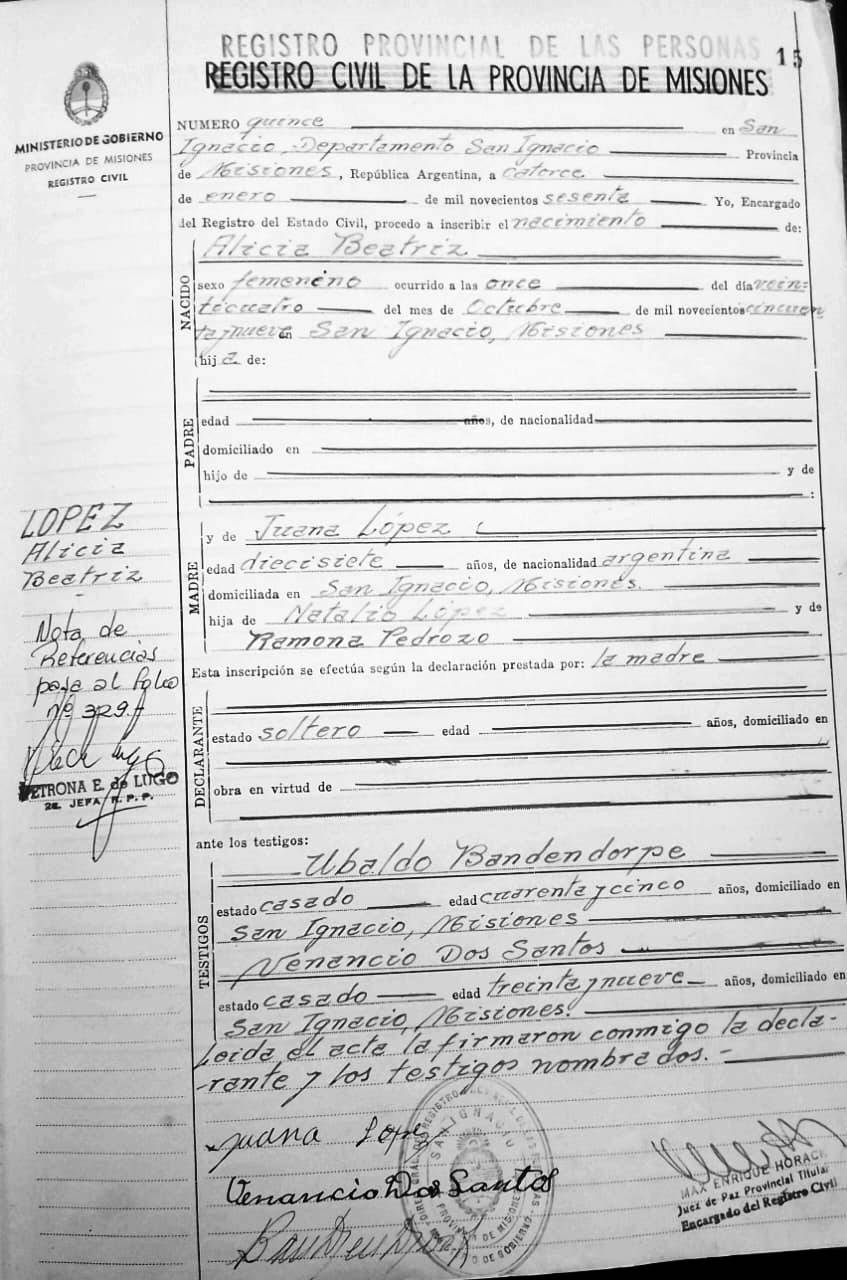 REGISTRO PROVINCIAL DE LAS PERSONAS
15
REGISTRO CIVIL DE LA PROVINCIA DE MISIONES
MINISTERIO DE GOBIERNO
PROVINCIA DE MISIONES
REGISTRO CIVIL
NUMERO quince en San
Ignacio Departamento San Ignacio Provincia
de Misiones, República Argentina, a catorce
de enero de mil novecientos sesenta Yo, Encargado
del Registro del Estado Civil, procedo a inscribir el nacimiento de:
NACIDO
Alicia Beatriz
sexo femenino ocurrido a las once del día vein-
ticuatro del mes de Octubre de mil novecientos cincuen
taynueve en San Ignacio, Misiones
hija de:
PADRE
edad años, de nacionalidad
domiciliado en
hijo de y de
:
MADRE
y de Juana López
edad diecisiete años, de nacionalidad argentina
domiciliada en San Ignacio, Misiones.
hija de Natalio López y de
Ramona Pedrozo
Esta inscripción se efectúa según la declaración prestada por: la madre
DECLARANTE
estado soltero edad años, domiciliado en
obra en virtud de
ante los testigos:
TESTIGOS
Ubaldo Bandendorpe
estado casado edad cuarenta y cinco años, domiciliado en
San Ignacio, Misiones
Venancio Dos Santos
estado casado edad treinta y nueve años, domiciliado en
San Ignacio, Misiones.
Leida el acta la firmaron conmigo la decla-
-rante y los testigos nombrados.-
LOPEZ
Alicia
Beatriz
-
Nota de
Referencias
pasa al folio
Nº 329.-
PETRONA E. de LUGO
2a. JEFA R. P. P.
Juana Lopez
Venancio Dos Santos
SAN IGNACIO
PROVINCIA DE MISIONES
MAX ENRIQUE HORAC
Juez de Paz Provincial Titular
Encargado del Registro Civil